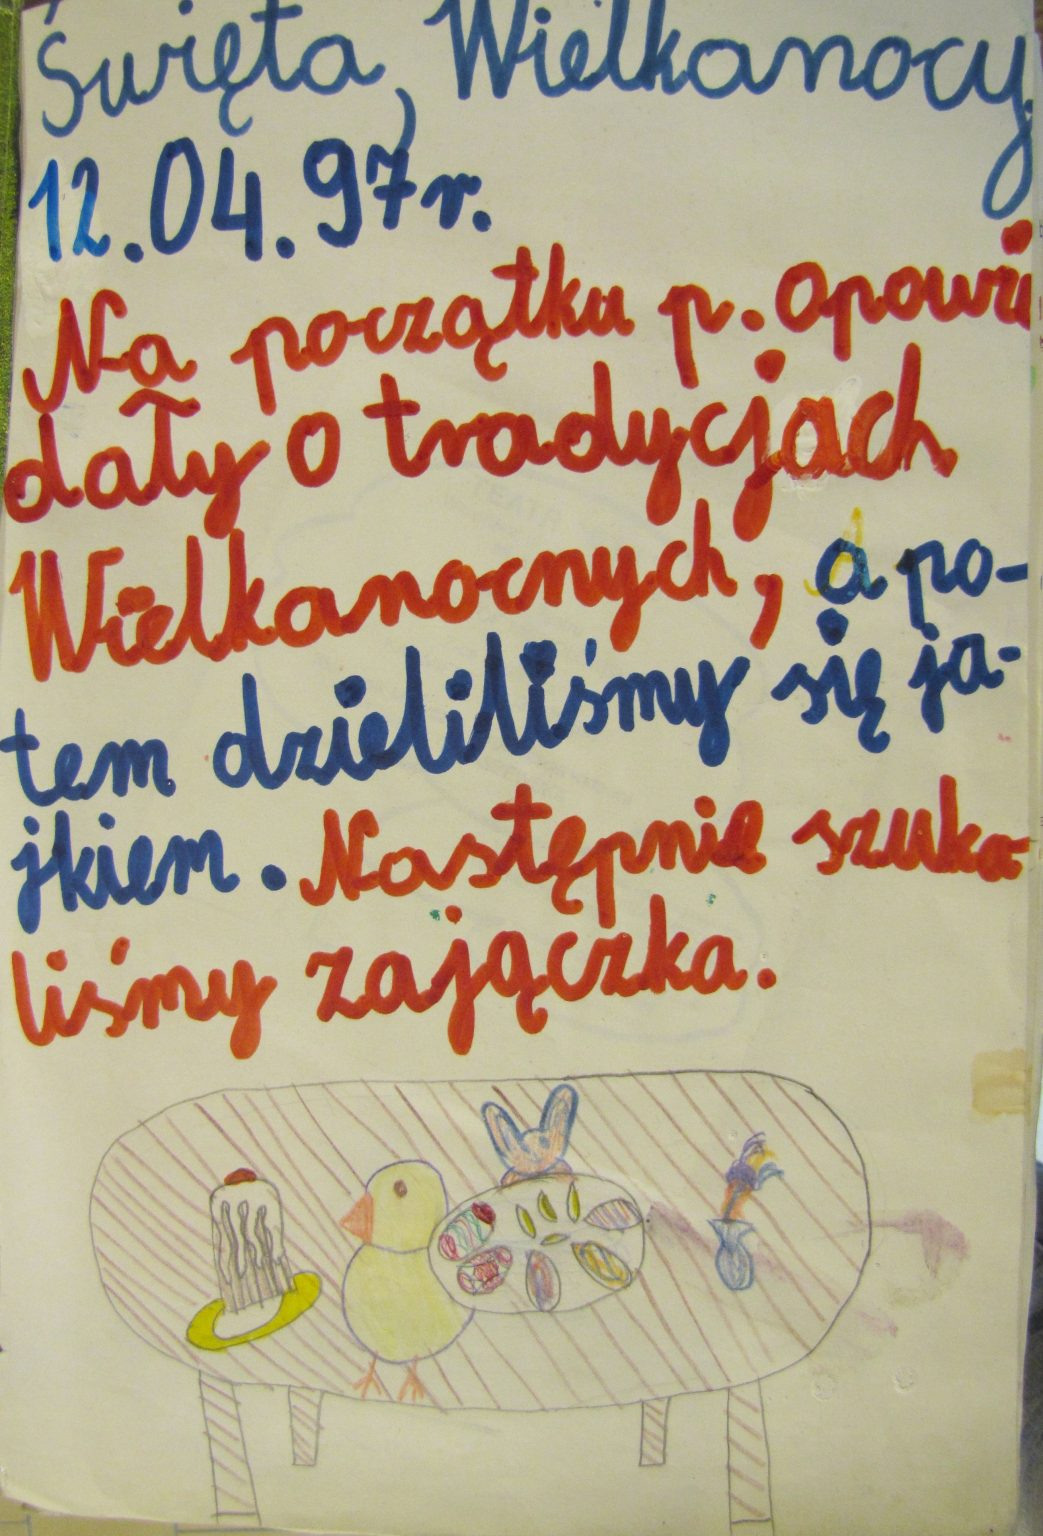 Święta Wielkanocy
12.04.97r.
Na początku p. opowie
dały o tradycjach
Wielkanocnych, a po-
tem dzieliliśmy się ja-
jkiem. Następnie szuka-
liśmy zajączka.